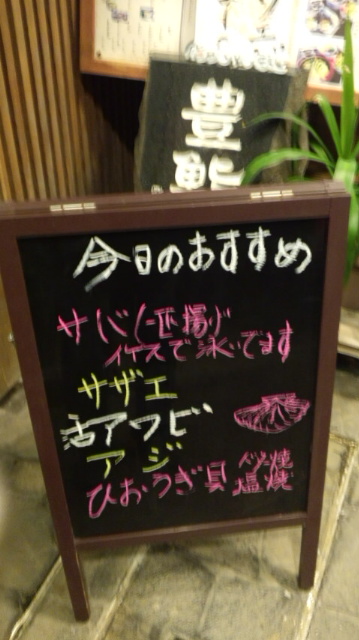 豊鮨
今日のおすすめ
サバ(一匹揚げ
イケスで泳いでます
サザエ
活アワビ
アジ
ひおうぎ貝 バター焼
塩焼